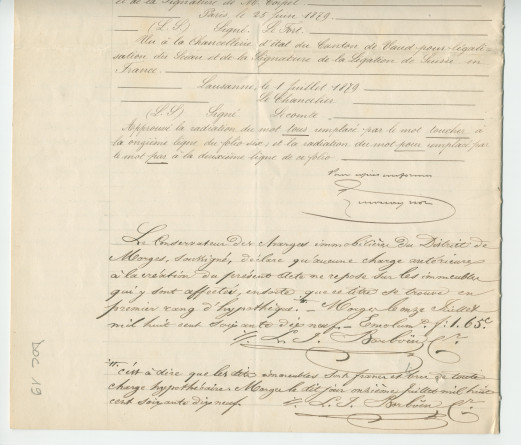 et de la Signature de M. 
Paris le 25 Juin 1879.
(L.S) Signé: Le Fort.
Vu à la Chancellerie d'état du Canton de Vaud pour légali-
sation du Sceau et de la Signature de la Légation de Suisse en
France.
Lausanne, le 1 Juillet 1879.
Le Chancelier
(L.S) Signé Lecomte.
Approuvé la radiation du mot tous remplacé par le mot toucher à
la onzième ligne du folio six; et la radiation du mot pour remplacé par
le mot par à la deuxième ligne de ce folio.
Pour copie conforme

Le Conservateur des charges immobilières du District de
Morges, soussigné, déclare qu'aucune charge antérieure
à la création du présent acte ne repose sur les immeubles
qui y sont affectés, ensorte que ce titre se trouve en
premier rang d'hypothèque. — Morges le onze Juillet
mil huit cent soixante dix neuf. — Emolum. f: 1. 65 c
L. S. Barbën Cr.
c'est à dire que les dits immeubles sont francs et de toute
charge hypothécaire. Morges le dit jour onzième juillet mil huit
cent soixante dix neuf. L. S. Barbën Cr.
DOC 19